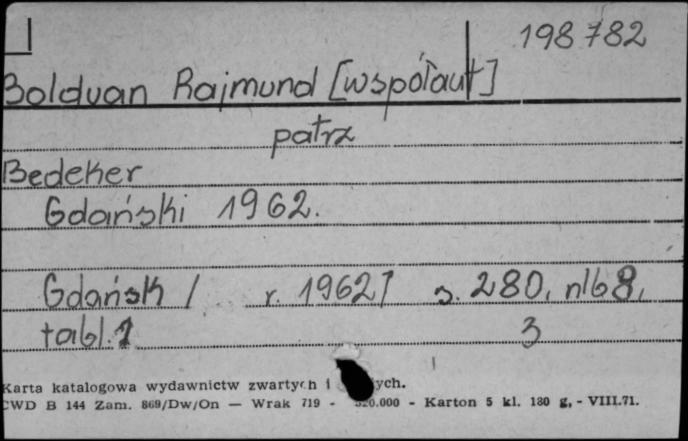 198782
Bolduan Rajmund [współaut]
patrz
Bedeker
Gdański 1962.
Gdańsk / r. 1962] s. 280, nlb 8,
tabl. 1 3
Karta katalogowa wydawnictw zwartych i ych.
CWD B 144 Zam. 869/Dw/On — Wrak 719 - 320.000 - Karton 5 kl. 180 g, - VIII.71.